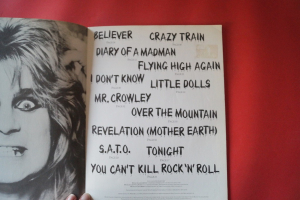 BELIEVER CRAZY TRAIN
DIARY OF A MADMAN
FLYING HIGH AGAIN
I DON'T KNOW LITTLE DOLLS
MR. CROWLEY
OVER THE MOUNTAIN
REVELATION (MOTHER EARTH)
S.A.T.O. TONIGHT
YOU CAN'T KILL ROCK'N'ROLL